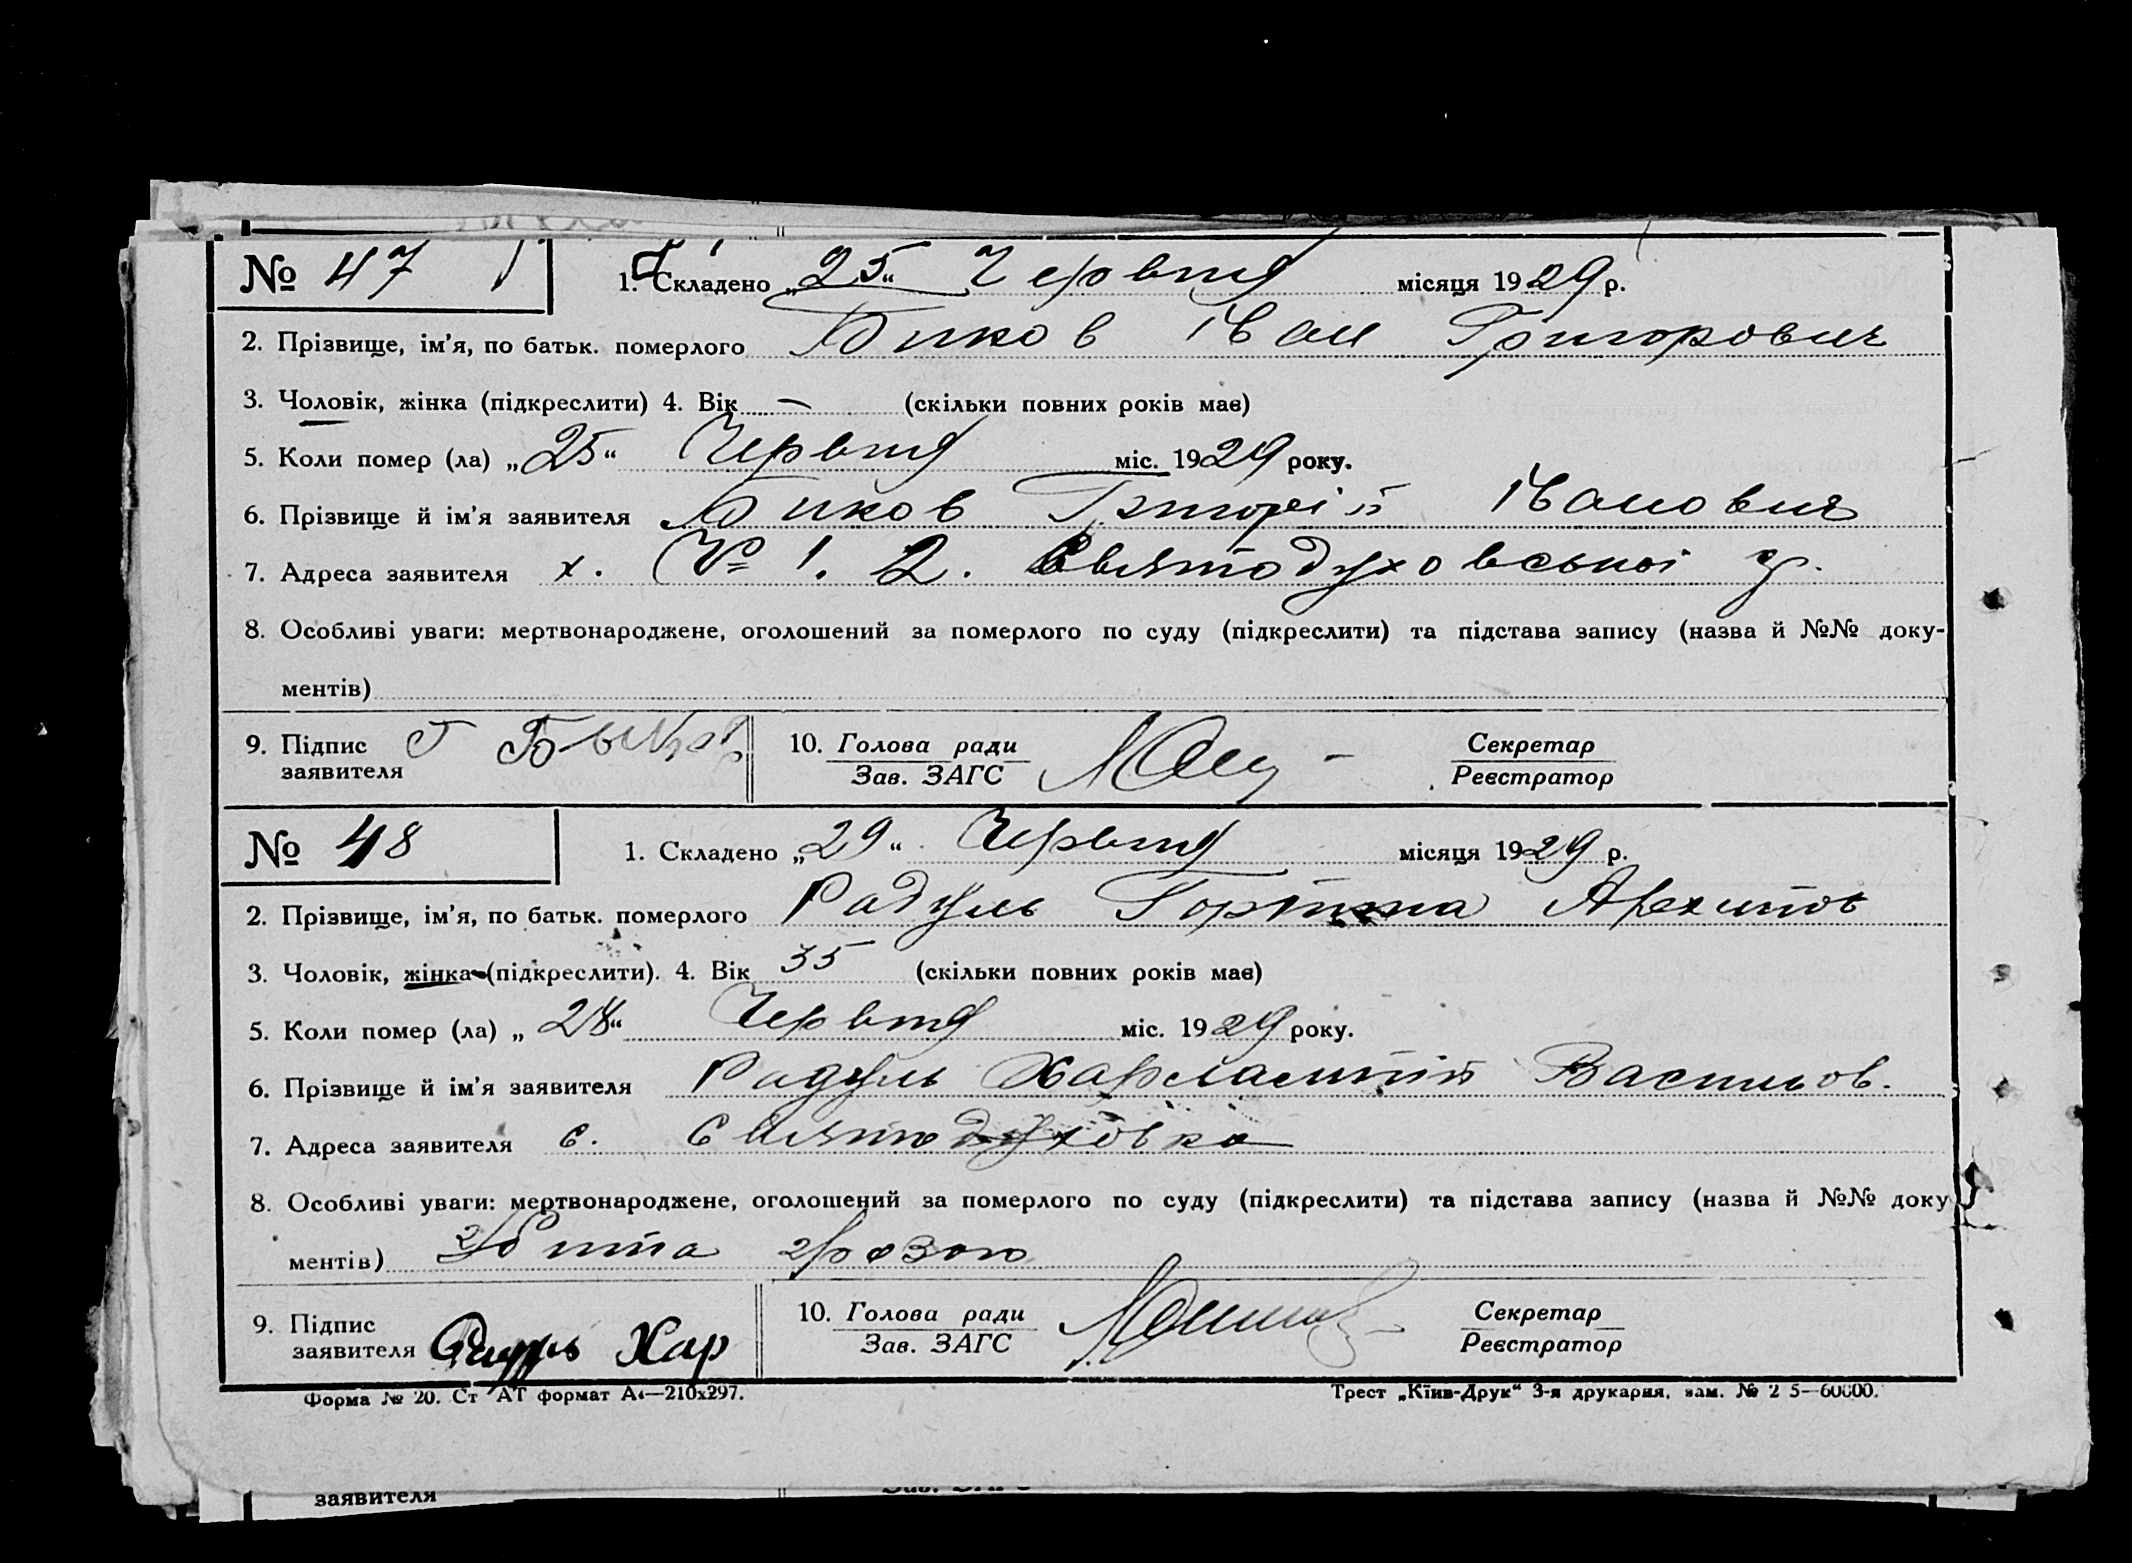 № 47
1. Складено „25“ Червня місяця 1929 р.
2. Прізвище, ім’я, по батьк. померлого Биков Іван Григорович
3. Чоловік, жінка (підкреслити) 4. Вік — (скільки повних років має)
5. Коли помер (ла) „25“ Червня міс. 1929 року.
6. Прізвище й ім’я заявителя Биков Григорій Іванович
7. Адреса заявителя х. № 1. 2. Святодуховської
8. Особливі уваги: мертвонароджене, оголошений за померлого по суду (підкреслити) та підстава запису (назва й №№ доку-
ментів)
9. Підпис заявителя Г Быков
10. Голова ради
Зав. ЗАГС
Секретар
Реєстратор
№ 48
1. Складено „29“ Червня місяця 1929 р.
2. Прізвище, ім’я, по батьк. померлого Радуль Горпина Архипов
3. Чоловік, жінка (підкреслити). 4. Вік 35 (скільки повних років має)
5. Коли помер (ла) „28“ Червня міс. 1929 року.
6. Прізвище й ім’я заявителя Радуль Харлампій Васильов.
7. Адреса заявителя с. Святодуховка
8. Особливі уваги: мертвонароджене, оголошений за померлого по суду (підкреслити) та підстава запису (назва й №№ доку
ментів) Убита грозою
9. Підпис заявителя Радуль Хар
10. Голова ради
Зав. ЗАГС
Секретар
Реєстратор
Форма № 20. Ст АТ формат А4—210х297.
Трест „Київ-Друк“ 3-я друкарня, зам. № 2 5—60000.
заявителя